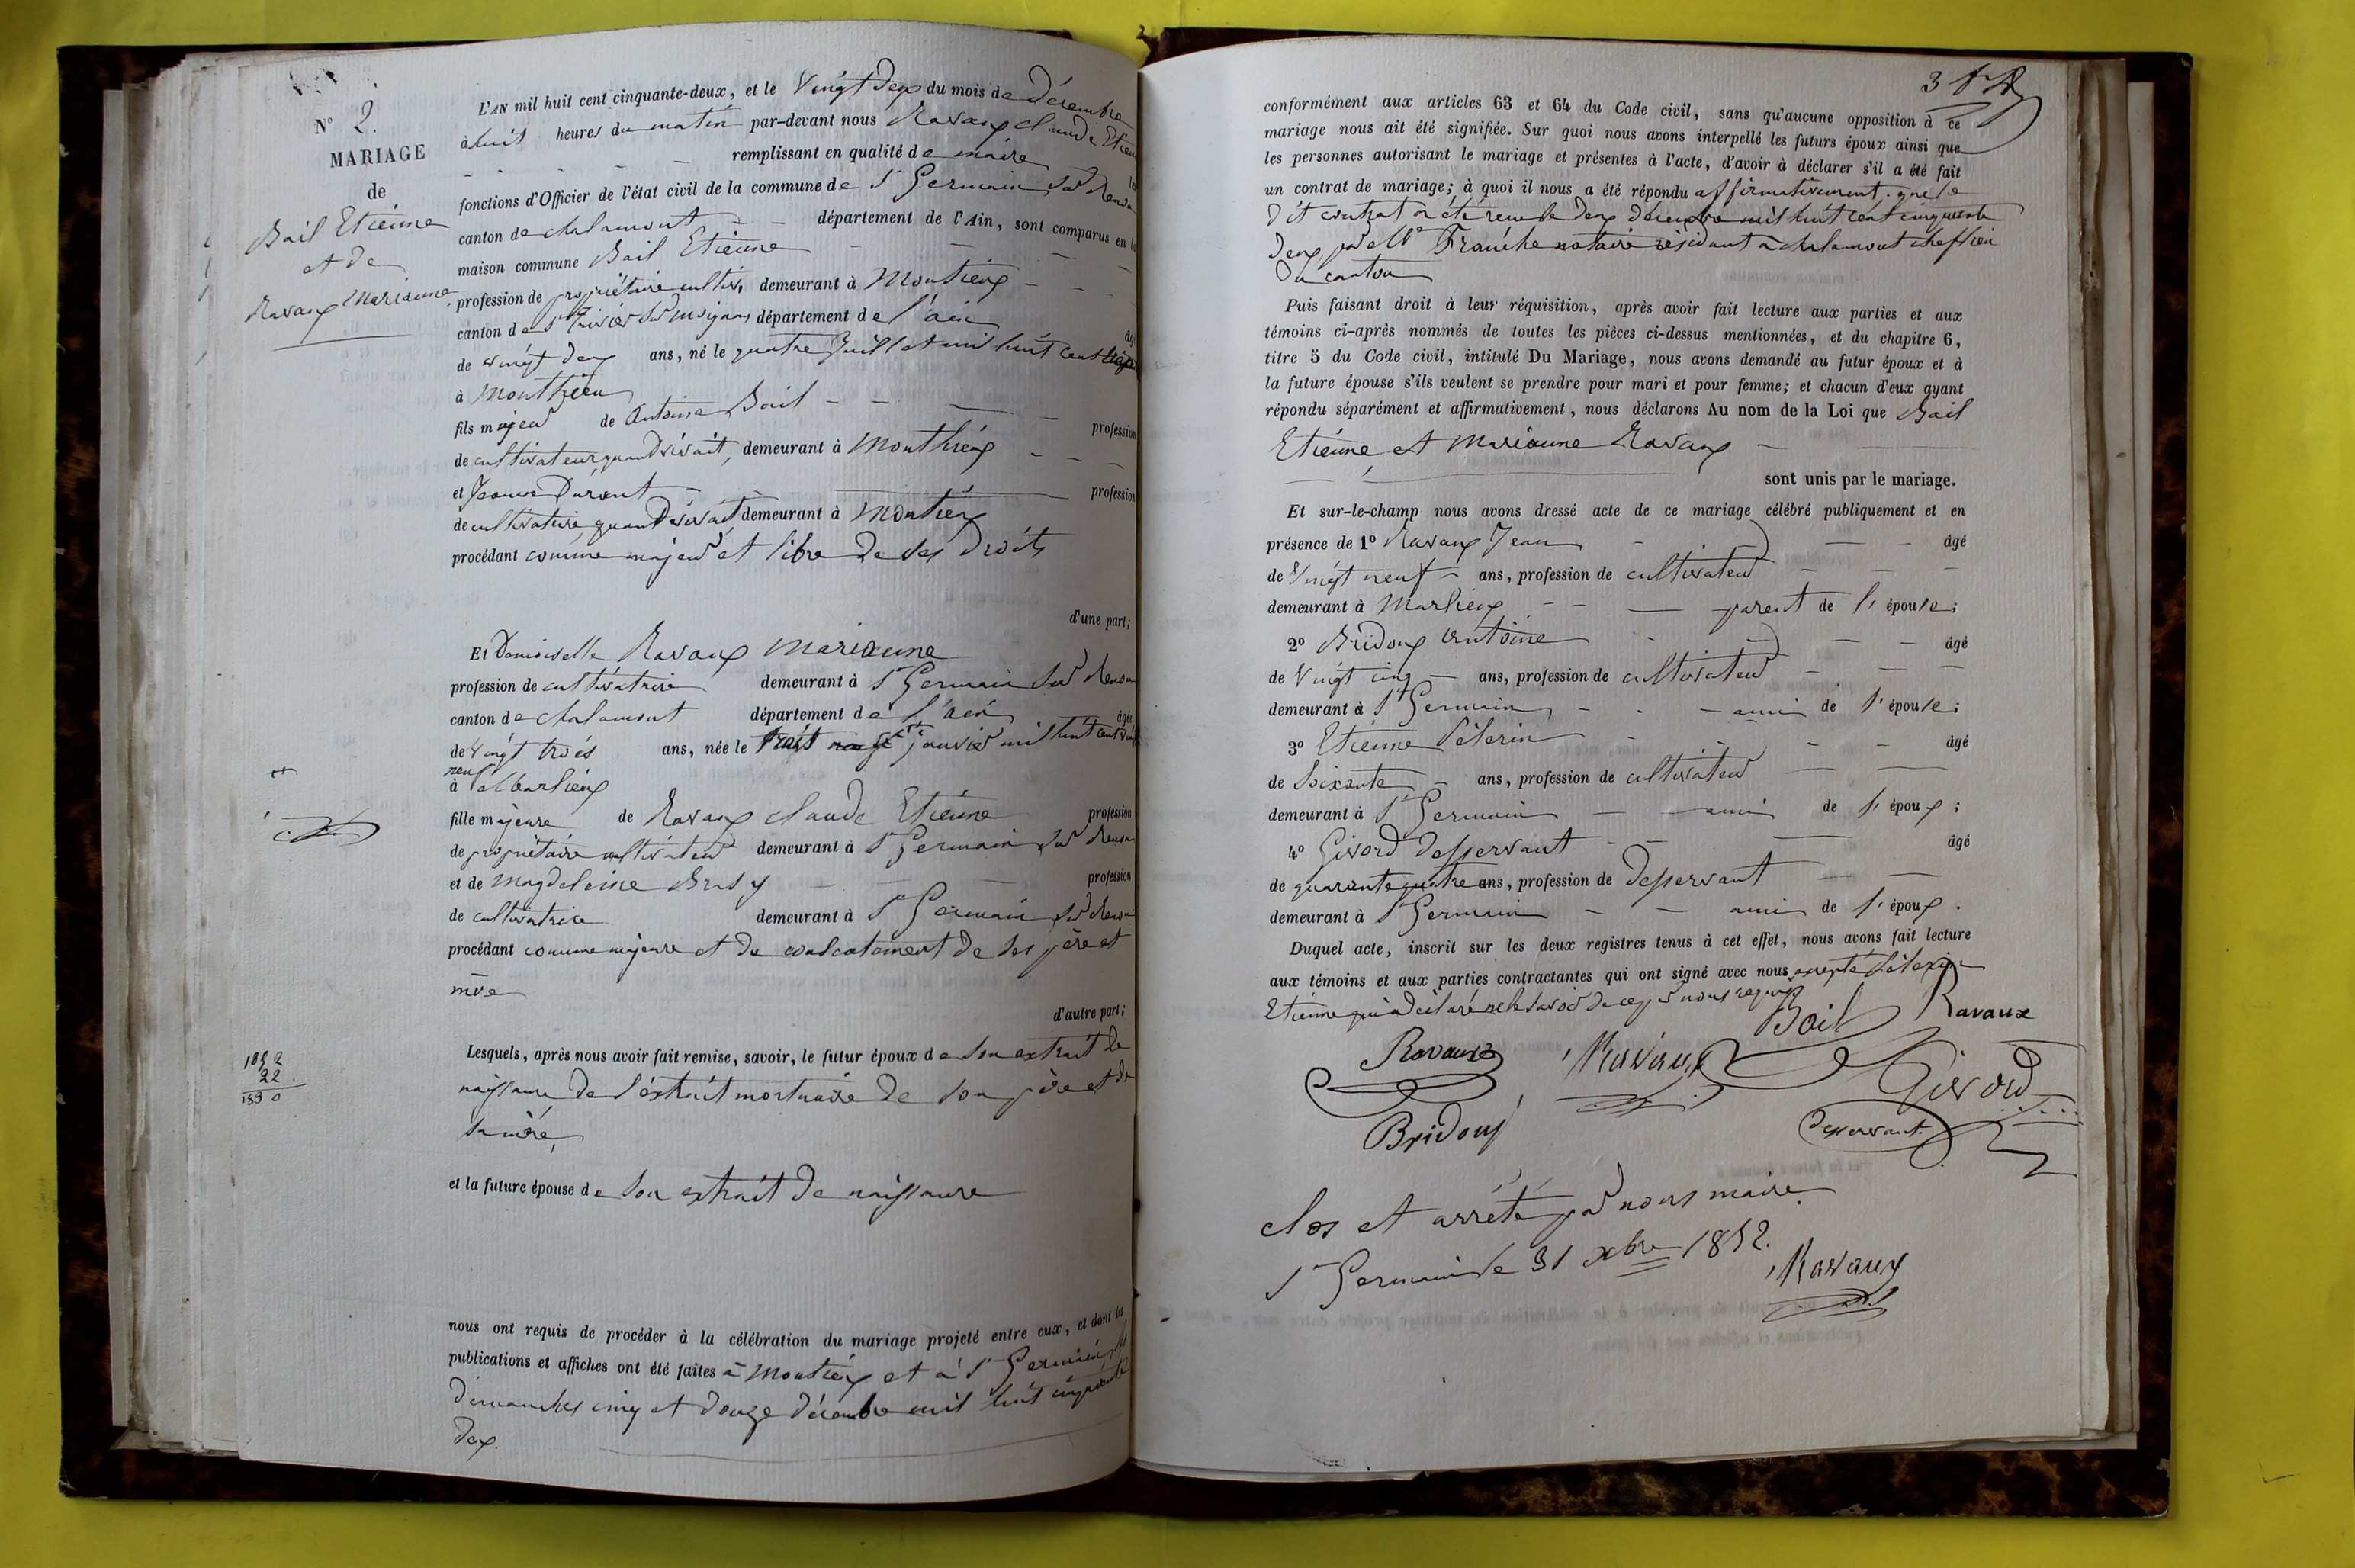 N° 2.
MARIAGE
de
Bail Etienne
et de
Ravaux Marianne
L'AN mil huit cent cinquante-deux, et le Vingt deux du mois de décembre
à huit heures du matin par-devant nous Ravaux Claude Etienne
remplissant en qualité de maire les
fonctions d'Officier de l'état civil de la commune de St Germain sur Renon
canton de chalamont département de l'Ain, sont comparus en la
maison commune Bail Etienne
profession de propriétaire cultiv, demeurant à Montieux
canton de St Trivier sur Moignans département de l'ain âgé
de vingt deux ans, né le quatre Juillet mil huit cent trente
à Monthieu
fils majeur de Antoine Bail profession
de cultivateur quand vivait, demeurant à Monthieux
et Jeanne Durant profession
de cultivatrice, quand vivait demeurant à Montieux
procédant comme majeur et libre de ses droits
d'une part;
Et Demoiselle Ravaux Marianne
profession de cultivatrice demeurant à St Germain sur Renon
canton de chalamont département de l'ain âgée
de vingt trois ans, née le janvier mil huit cent vingt
neuf
à Marlieux
fille majeure de Ravaux claude Etienne profession
de propriétaire cultivateur demeurant à St Germain sur Renon
et de Magdeleine profession
de cultivatrice demeurant à St Germain sur Renon
procédant comme majeure et du consentement de ses père et
mère
d'autre part;
Lesquels, après nous avoir fait remise, savoir, le futur époux de son extrait de
naissance de l'extrait mortuaire de son père et de
sa mère,
1852
22
1830
et la future épouse de son extrait de naissance
nous ont requis de procéder à la célébration du mariage projeté entre eux, et dont les
publications et affiches ont été faites à Montieux et à St Germain les
dimanches cinq et douze décembre mil huit cinquante
deux.
conformément aux articles 63 et 64 du Code civil, sans qu'aucune opposition à ce
mariage nous ait été signifiée. Sur quoi nous avons interpellé les futurs époux ainsi que
les personnes autorisant le mariage et présentes à l'acte, d'avoir à déclarer s'il a été fait
un contrat de mariage; à quoi il nous a été répondu affirmativement. que le
dit contrat a été reçu le deux décembre mil huit cent cinquante
deux par Me Franche notaire résidant à chalamont chef lieu
du canton
Puis faisant droit à leur réquisition, après avoir fait lecture aux parties et aux
témoins ci-après nommés de toutes les pièces ci-dessus mentionnées, et du chapitre 6,
titre 5 du Code civil, intitulé Du Mariage, nous avons demandé au futur époux et à
la future épouse s'ils veulent se prendre pour mari et pour femme; et chacun d'eux ayant
répondu séparément et affirmativement, nous déclarons Au nom de la Loi que Bail
Etienne, et Marianne Ravaux
sont unis par le mariage.
Et sur-le-champ nous avons dressé acte de ce mariage célébré publiquement et en
présence de 1° Ravaux Jean âgé
de Vingt neuf ans, profession de cultivateur
demeurant à Marlieux parent de l'épouse;
2° Bridoux Antoine âgé
de Vingt cinq ans, profession de cultivateur
demeurant à St Germain ami de l'épouse;
3° Etienne Pélerin âgé
de soixante ans, profession de cultivateur
demeurant à St Germain ami de l'époux;
4° Givord desservant âgé
de quarante quatre ans, profession de desservant
demeurant à St Germain ami de l'époux.
Duquel acte, inscrit sur les deux registres tenus à cet effet, nous avons fait lecture
aux témoins et aux parties contractantes qui ont signé avec nous, excepté Pélerin
Etienne qui a déclaré ne le savoir de ce par nous requis
Bail Ravaux
Ravaux Ravaux
Givord
Bridoux desservant.
clos et arrêté par nous maire
St Germain le 31 xbre 1852.
Ravaux